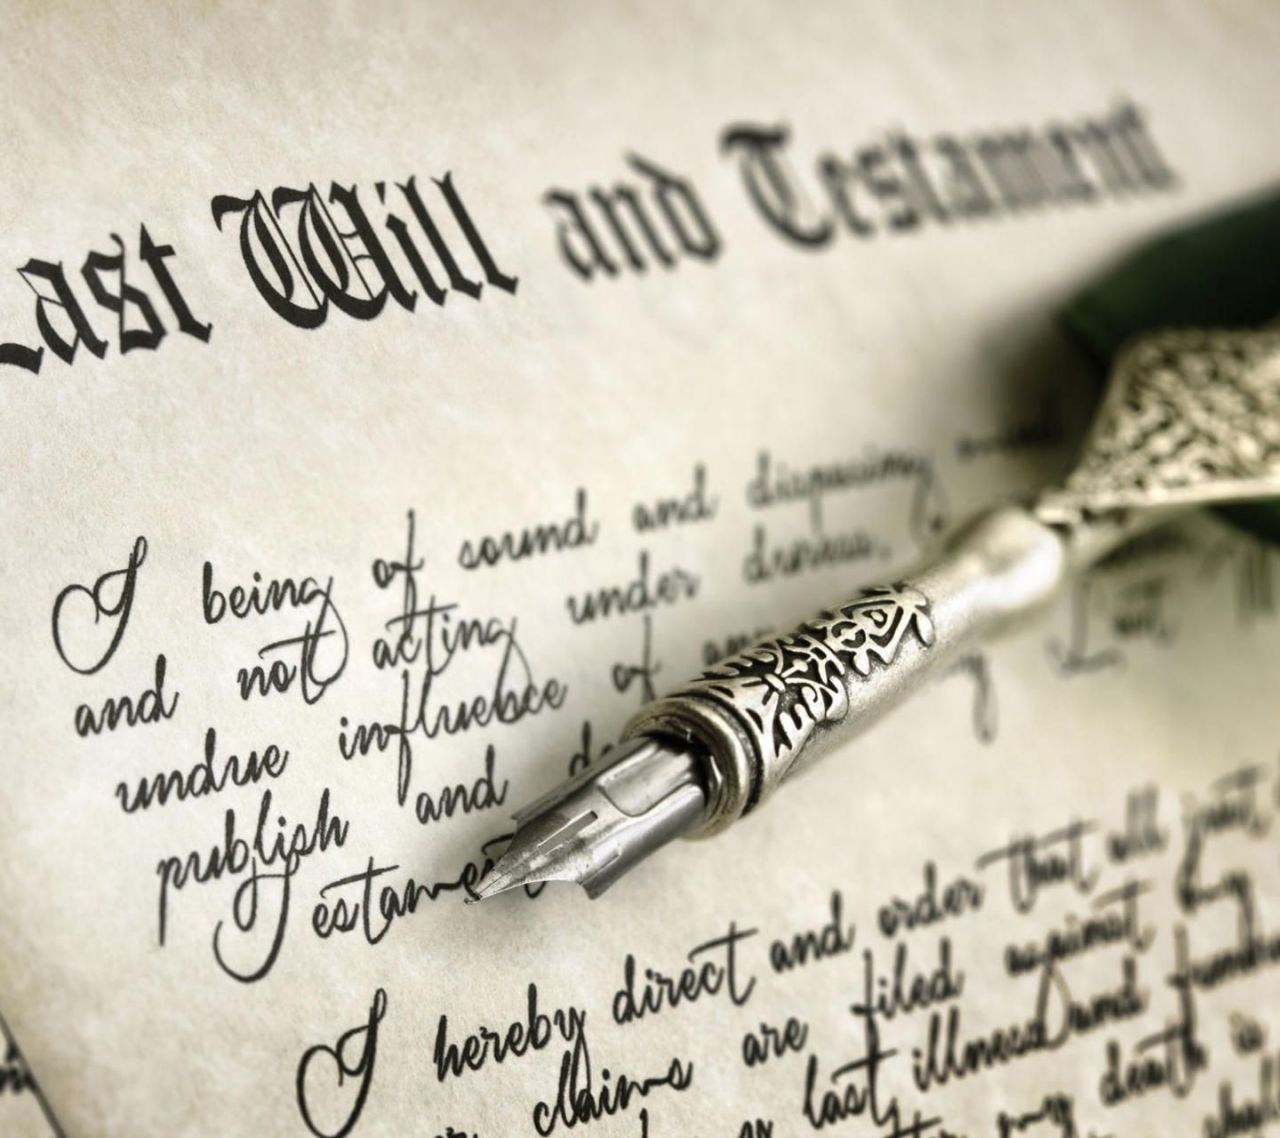 Last Will and Testament
I being of sound and disposing
and not acting under duress,
undue influebce of
publish and
estament
I hereby direct and order that all just
claims are filed against my
last illness and
my death is
shall